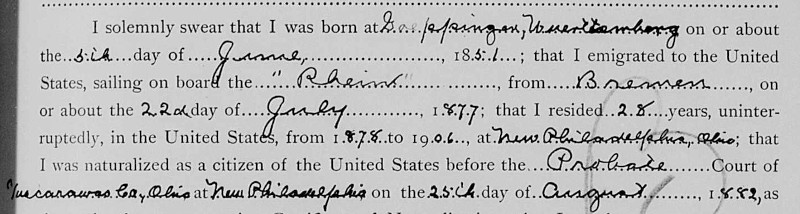 I solemnly swear that I was born at Goeppingen, Wuerttemberg on or about
the 5th day of June, 1851; that I emigrated to the United
States, sailing on board the "Rhein", from Bremen, on
or about the 22d day of July, 1877; that I resided 28 years, uninter-
ruptedly, in the United States, from 1878 to 1906, at New Philadelphia, Ohio; that
I was naturalized as a citizen of the United States before the Probate Court of
Tuscarawas Co, Ohio at New Philadelphia on the 25th day of August, 1882, as